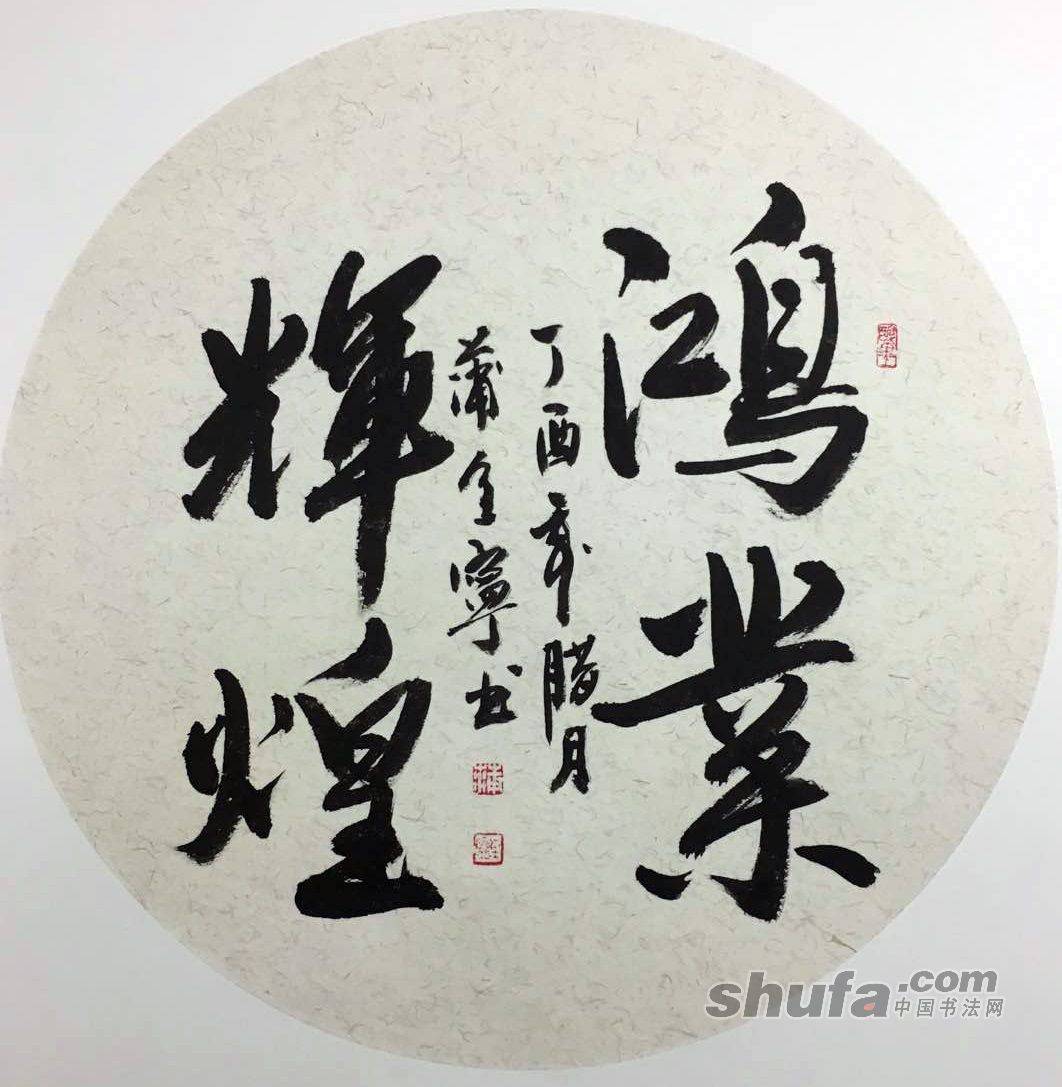 鴻業
丁酉年腊月
蒲全寧书
輝煌
shufa.com
中国书法网